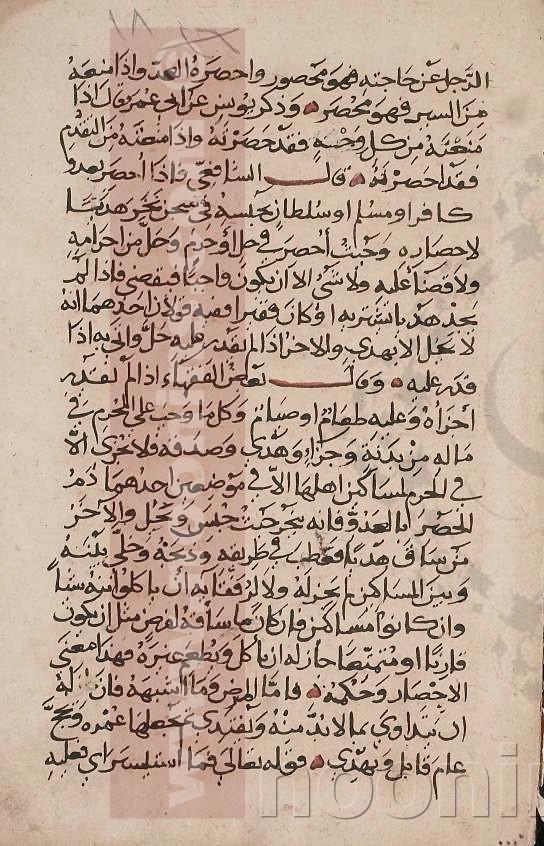 ١٨
الرجل عن حاجته فهو محصور واحصره العدو واذا منعه
من السير فهو محصر وذكر يونس عن ابي عمرو قال اذا
منعته من كل وجه فقد حصرته واذا منعته من التقدم
فقد احصرته قال الشافعي فاذا احصر بعدو
كافر او مسلم او سلطان بحبسه في سجن نحر هديا
لاحصاره وحيث احصر في حل او حرم وحل من احرامه
ولا قضا عليه ولا شي الا ان يكون واجبا فيقضي فاذا لم
يجد هديا يشتريه او كان فقيرا ففيه قولان احدهما انه
لا يحل الا بهدي والاخر اذا لم يقدر عليه حل واتى به اذا
قدر عليه وقال بعض الفقهاء اذا لم يقدر
اجزاه وعليه طعام او صيام وكل ما وجب على المحرم في
ماله من بدنة وجزاء وهدي وصدقة فلا يجزي الا
في الحرم لمساكين اهلها الا في موضعين احدهما دم
المحصر بالعدو فانه ينحر حيث حبس ويحل والاخر
من ساق هديا فعطب في طريقه وذبحه وخلى بينه
وبين المساكين لم يجز له ولا لرفقايه ان ياكلوا منه شيا
وان كانوا مساكين فان كان ما ساقه لفرض مثل ان يكون
قارنا او متمتعا جاز له ان ياكل ويطعم غيره فهذا معنى
الاحصار وحكمه فاما المرض وما اشبهه فان له
ان يتداوى بما لا بد منه ويفتدي ثم يجعلها عمره ويحج
عام قابل ويهدي قوله تعالى فما استيسر اي فعليه
www.noormags
noorlib